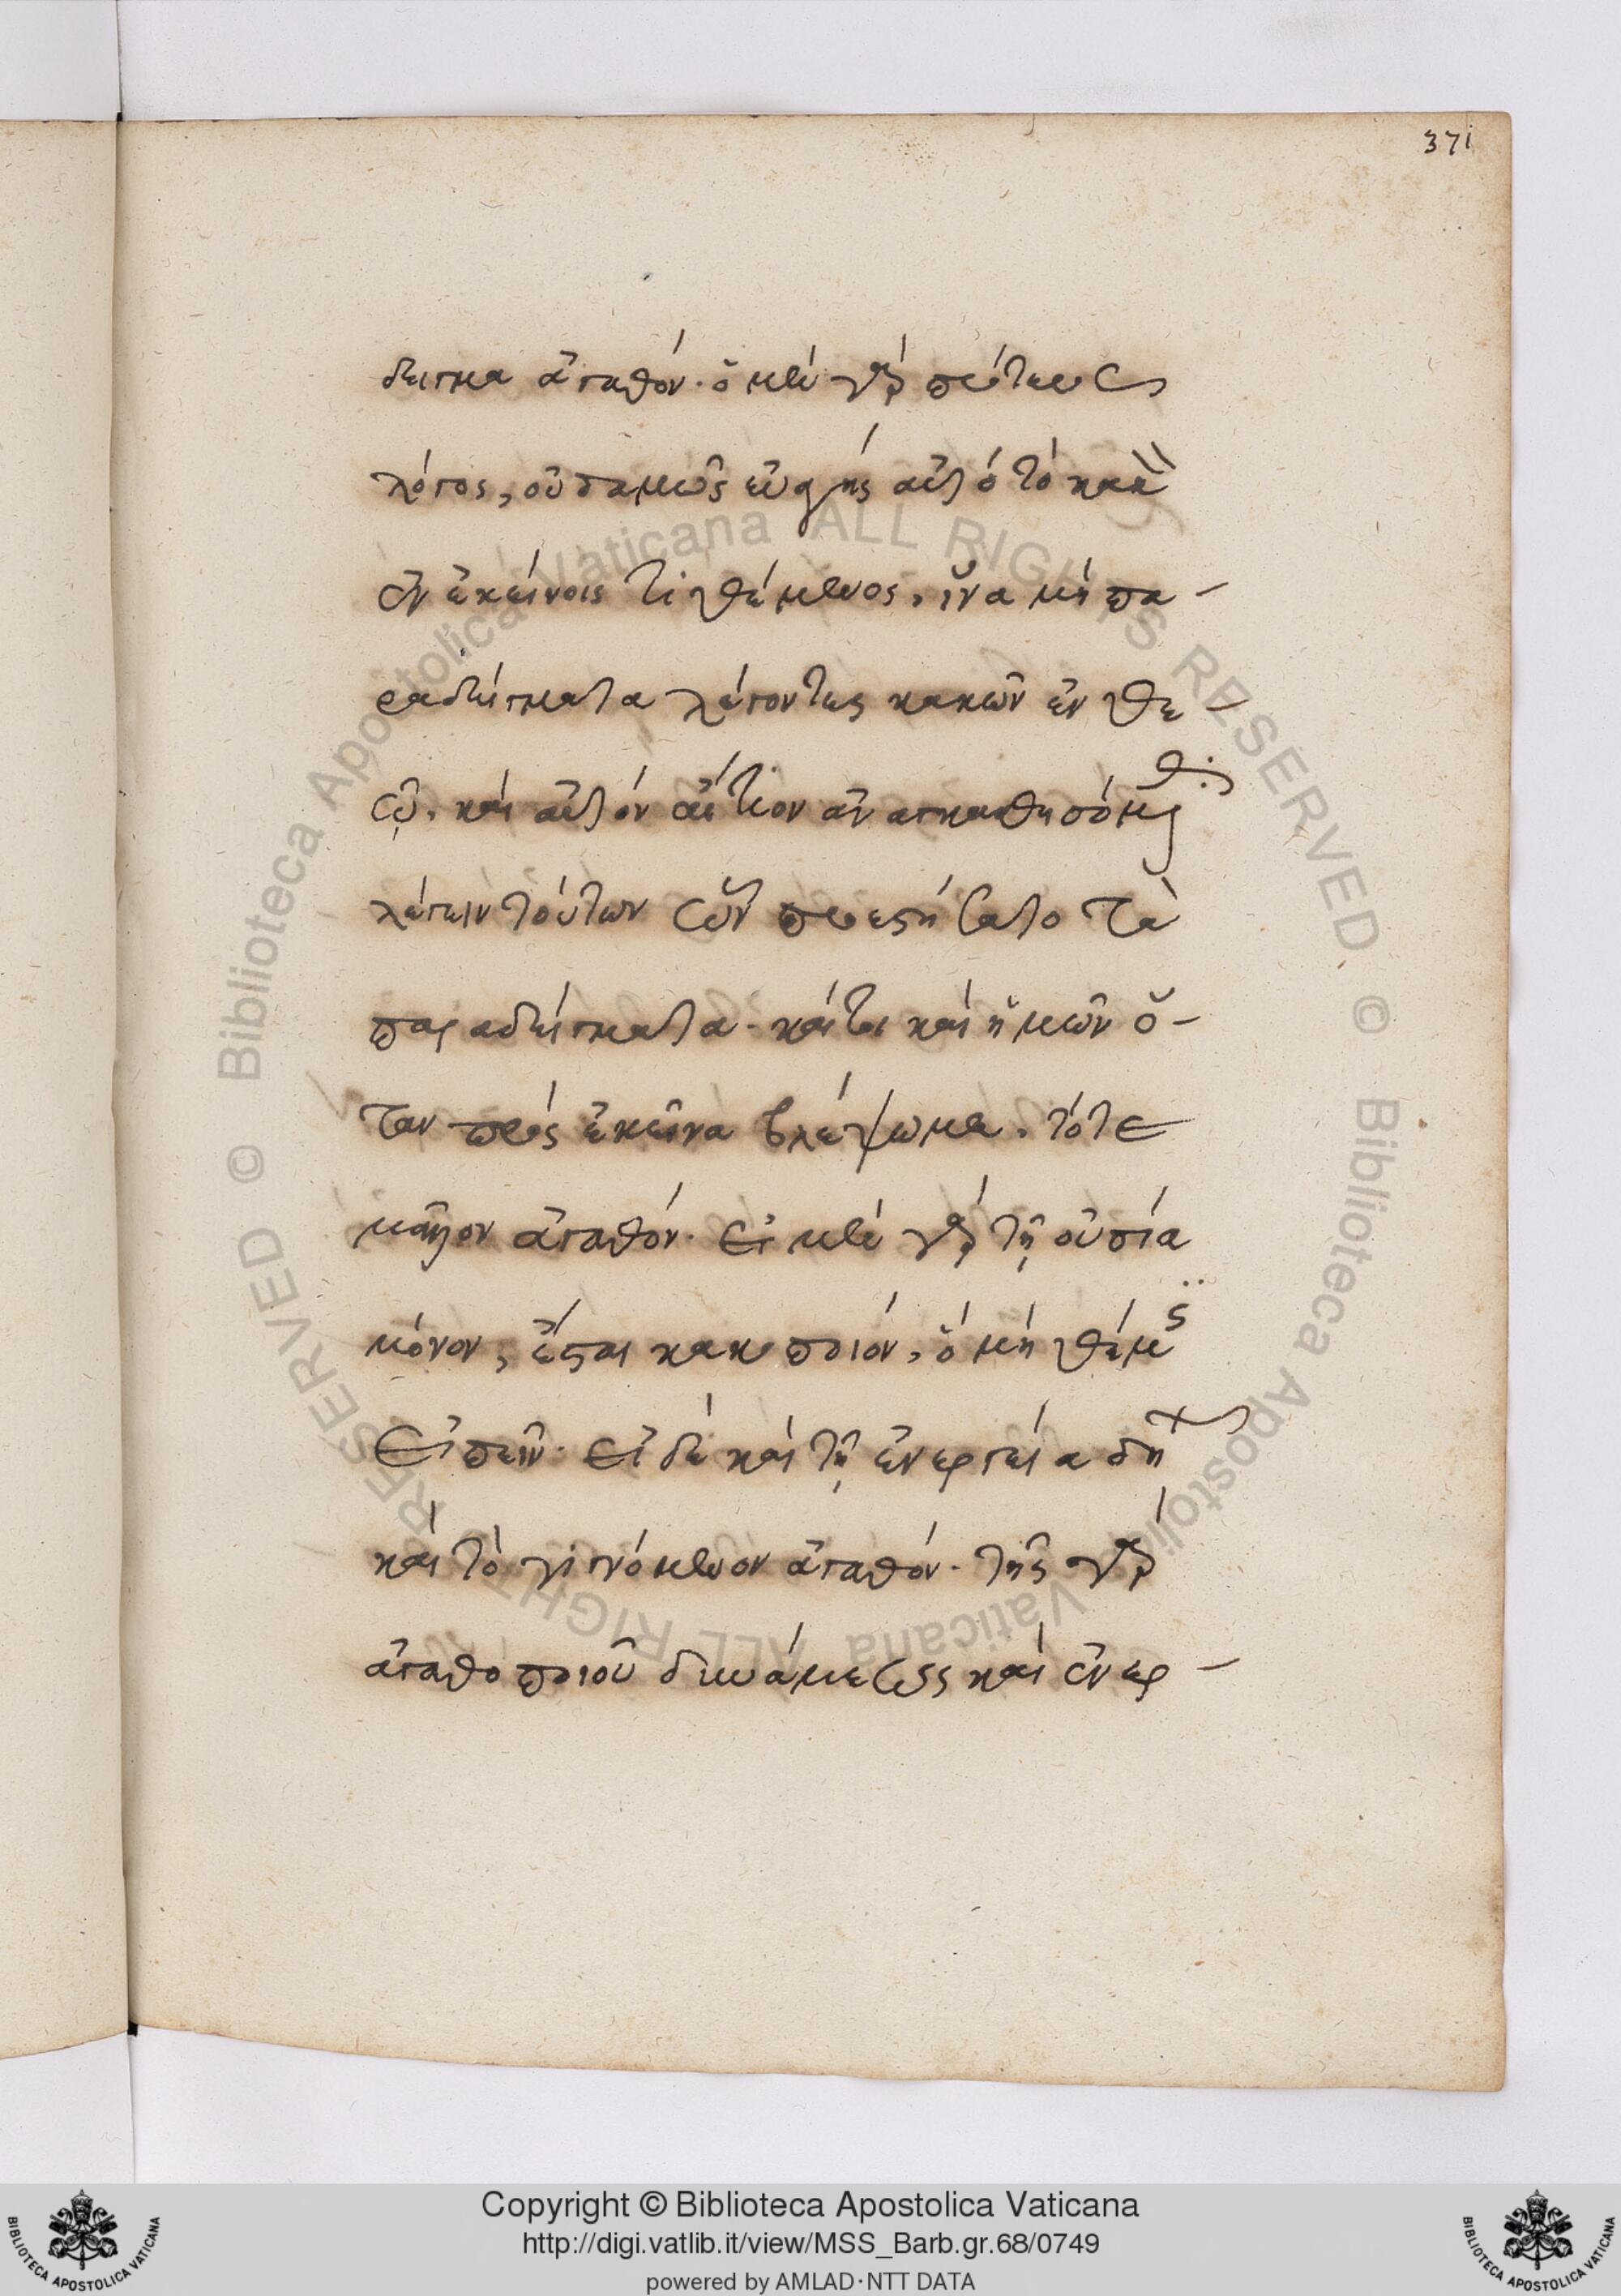 371
δειγμα ἀγαθόν· ὁ μὲν γὰρ πρότερος
λόγος, οὐδαμῶς εὐαγὴς αὐτὸ τὸ κακὸν
ἐν ἐκείνοις τιθέμενος, ἵνα μὴ πα-
ραδείγματα λέγοντες κακῶν ἐν θε-
ῷ, καὶ αὐτὸν αἴτιον ἀναγκασθησόμεθα
λέγειν τούτων ὧν προεστήσατο τὰ
παραδείγματα· καίτοι καὶ ἡμῶν ὅ-
ταν πρὸς ἐκεῖνα βλέψωμεν, τότε
μᾶλλον ἀγαθόν· εἰ μὲν γὰρ τῇ οὐσίᾳ
μόνον, ἔσται κακοποιόν, ὃ μὴ θέμις
εἰπεῖν· εἰ δὲ καὶ τῇ ἐνεργείᾳ δῆλον
καὶ τὸ γιγνόμενον ἀγαθόν· τῆς γὰρ
ἀγαθοποιοῦ δυνάμεως καὶ ἐνερ-
Copyright © Biblioteca Apostolica Vaticana
http://digi.vatlib.it/view/MSS_Barb.gr.68/0749
powered by AMLAD·NTT DATA
© Biblioteca Apostolica Vaticana ALL RIGHTS RESERVED © Biblioteca Apostolica Vaticana ALL RIGHTS RESERVED
BIBLIOTECA APOSTOLICA VATICANA
BIBLIOTECA APOSTOLICA VATICANA